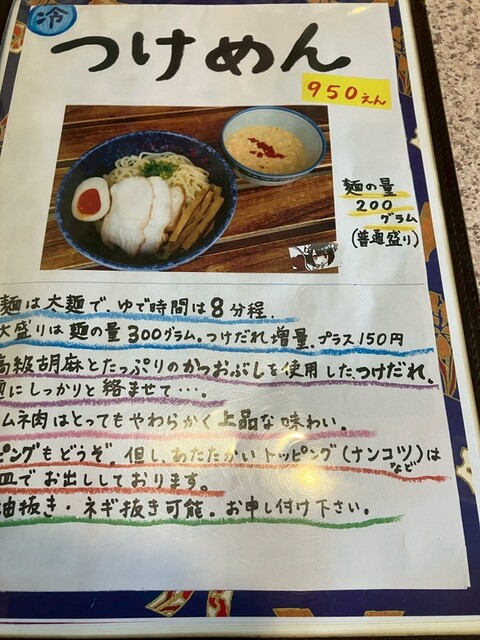 冷
つけめん
950えん
麺の量
200
グラム
(普通盛り)
麺は太麺で、ゆで時間は8分程。
大盛りは麺の量300グラム。つけだれ増量。プラス150円
高級胡麻とたっぷりのかつおぶしを使用したつけだれ。
にしっかりと絡ませて…。
ムネ肉はとってもやわらかく上品な味わい。
ピングもどうぞ。但し、あたたかいトッピング(ナンコツ)は
など
皿でお出ししております。
油抜き・ネギ抜き可能。お申し付け下さい。